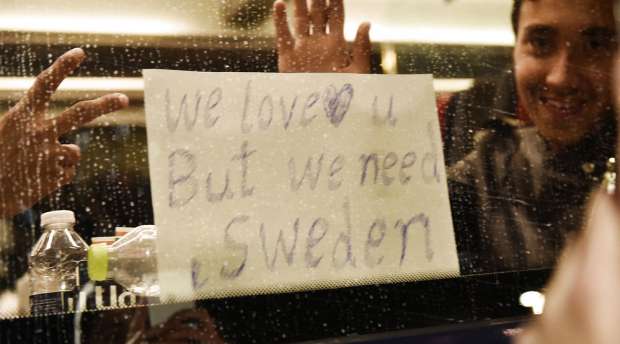 We love♥ u
But we need
Sweden